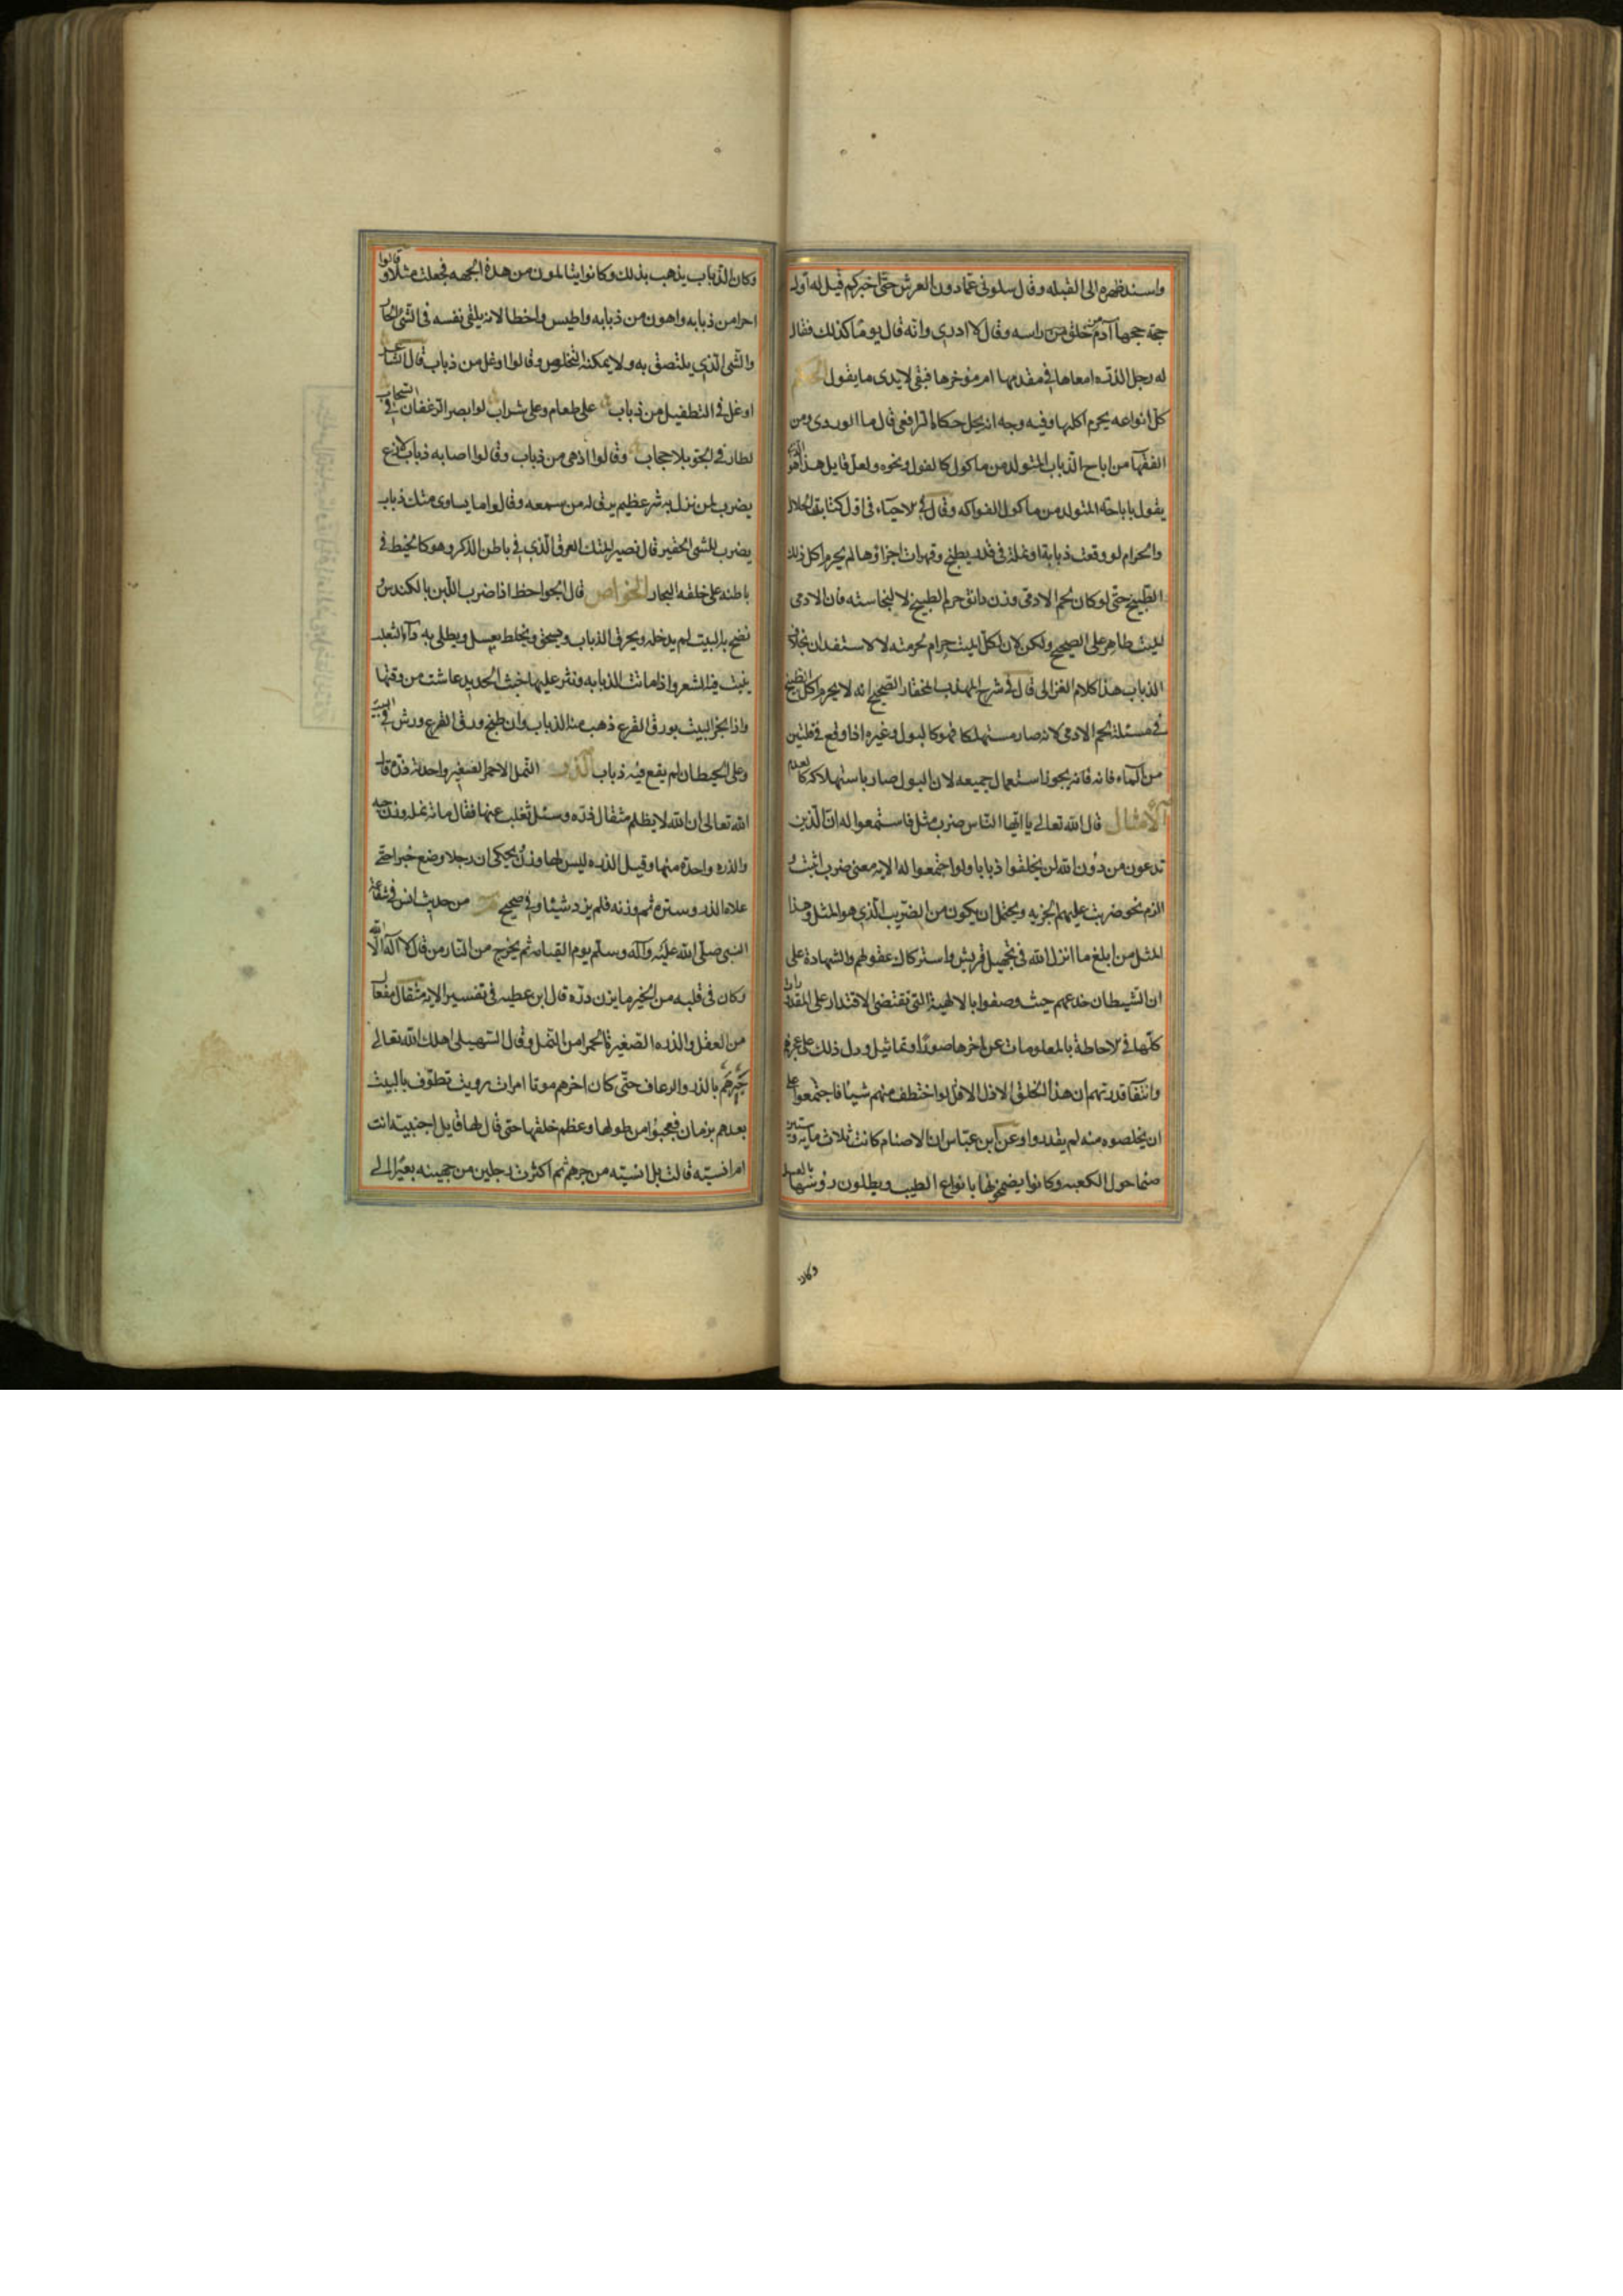 واسند ظهره الى القبله وقال سلونى عمّا دون العرش حتّى اخبركم فقيل له اوّله
حجة حجها آدم من حلق راسه وقال لا ادرى وانه قال يومًا كذلك فقال
له رجل الذرّه امعاها فى مقدمها ام مؤخرها فبقى لا يدرى ما يقول الحكم
كلّ انواعه يحرم اكلها وفيه وجه انه يحل حكاه الرافعى قال الماوردى ومن
الفقها من اباح الذباب المتولد من ماكول كالفول ونحوه ولعل قايل هذا هو
يقول باباحة المتولد من ماكول الفواكه وقال فى الاحياء فى اول كتاب الحلال
والحرام لو وقعت ذبابة او نملة فى قدر يطبخ وتهرات اجزاؤها لم يحرم اكل ذلك
الطبيخ حتى لو كان لحم الادمى وزن دانق حرم الطبيخ لا لنجاسته فان الادمى
الميت طاهر على الصحيح ولكن لان اكل الميت حرام لحرمته لا لاستقذاره بخلاف
الذباب هذا كلام الغزالى قال فى شرح المهذب المختار الصحيح انه لا يحرم اكل الطبيخ
فى مسئلة لحم الادمى لانه صار مستهلكا فهو كالبول وغيره اذا وقع فى قلتين
من الماء فانه يجوز استعمال جميعه لان البول صار باستهلاكه كالعدم
الامثال قال الله تعالى يا ايّها النّاس ضرب مثل فاستمعوا له انّ الّذين
تدعون من دون الله لن يخلقوا ذبابا ولو اجتمعوا له الايه معنى ضرب اثبت و
الزم نحو ضربت عليهم الجزيه ويحتمل ان يكون من الضريب الّذى هو المثل وهذا
المثل من ابلغ ما انزل الله فى تجهيل قريش واستركاك عقولهم والشهادة على
ان الشيطان خدعهم حيث وصفوا بالالهية التى تقتضى الاقتدار على المقدورات
كلّها والاحاطة بالمعلومات عن اخرها صورًا وتماثيل ودل ذلك على عجزهم
وانتفاء قدرتهم ان هذا الخلق الاذل الاقل لو اختطف منهم شيئا فاجتمعوا على
ان يخلصوه منه لم يقدروا وعن ابن عبّاس ان الاصنام كانت ثلاث مايه وستين
صنما حول الكعبه وكانوا يضمخونها بانواع الطيب ويطلون رؤسها بالعسل
وكان
وكان الذباب يذهب بذلك وكانوا يتالمون من هذه الجهه فجعلت مثلا وقالوا
اجرا من ذبابه واهون من ذبابه واطيش واخطا لانه يلقى نفسه فى الشئ الحار
والشئ الّذى يلتصق به ولا يمكنه التخلص وقالوا اوغل من ذباب قال الشاعر
اوغل فى التطفيل من ذباب على طعام وعلى شراب لو ابصر الرغفان فى السحاب
لطار فى الجو بلا حجاب وقالوا ازهى من ذباب وقالوا اصابه ذباب لاذع
يضرب لمن نزل به شر عظيم يرق له من سمعه وقالوا ما يساوى متك ذباب
يضرب للشئ الحقير قال نصير المتك العرق الّذى فى باطن الذكر وهو كالخيط فى
باطنه على خلقه البجار الخواص قال الجواحظ اذا ضرب اللبن بالكندس
نضح به البيت لم يدخله ويحرق الذباب ويسحق ويخلط بعسل ويطلى به داء الثعلب
ينبت فيه الشعر واذا ماتت الذبابه ونثر عليها خبث الحديد عاشت من وقتها
واذا بخر البيت بورق القرع ذهب منه الذباب وان طبخ ورق القرع ورش فى البيت
وعلى الحيطان لم يقع فيه ذباب الذر النمل الاحمر الصغير واحدته ذره قال
الله تعالى ان الله لا يظلم مثقال ذرّه وسئل ثعلب عنها فقال مائه نمله وزن حبه
والذره واحدة منها وقيل الذره ليس لها وزن ويحكى ان رجلا وضع خبزا حتّى
علاه الذر وستره ثم وزنه فلم يزد شيئا وفى صحيح من حديث انس فى شفاعة
النبى صلّى الله عليه وآله وسلّم يوم القيامه ثم يخرج من النار من قال لا اله الّا الله
وكان فى قلبه من الخير ما يزن ذره قال ابن عطيه فى تفسير الايه مثقال مفعال
من الثقل والذره الصغيرة الحمرا من النمل وقال السهيلى اهلك الله تعالى
جرهم بالذر والرعاف حتّى كان اخرهم موتا امراة رويت تطوّف بالبيت
بعدهم بزمان فعجبوا من طولها وعظم خلقها حتى قال لها قايل اجنية انت
ام انسيّه قالت بل انسيّه من جرهم ثم اكترت رجلين من جهينه بعيرا الى